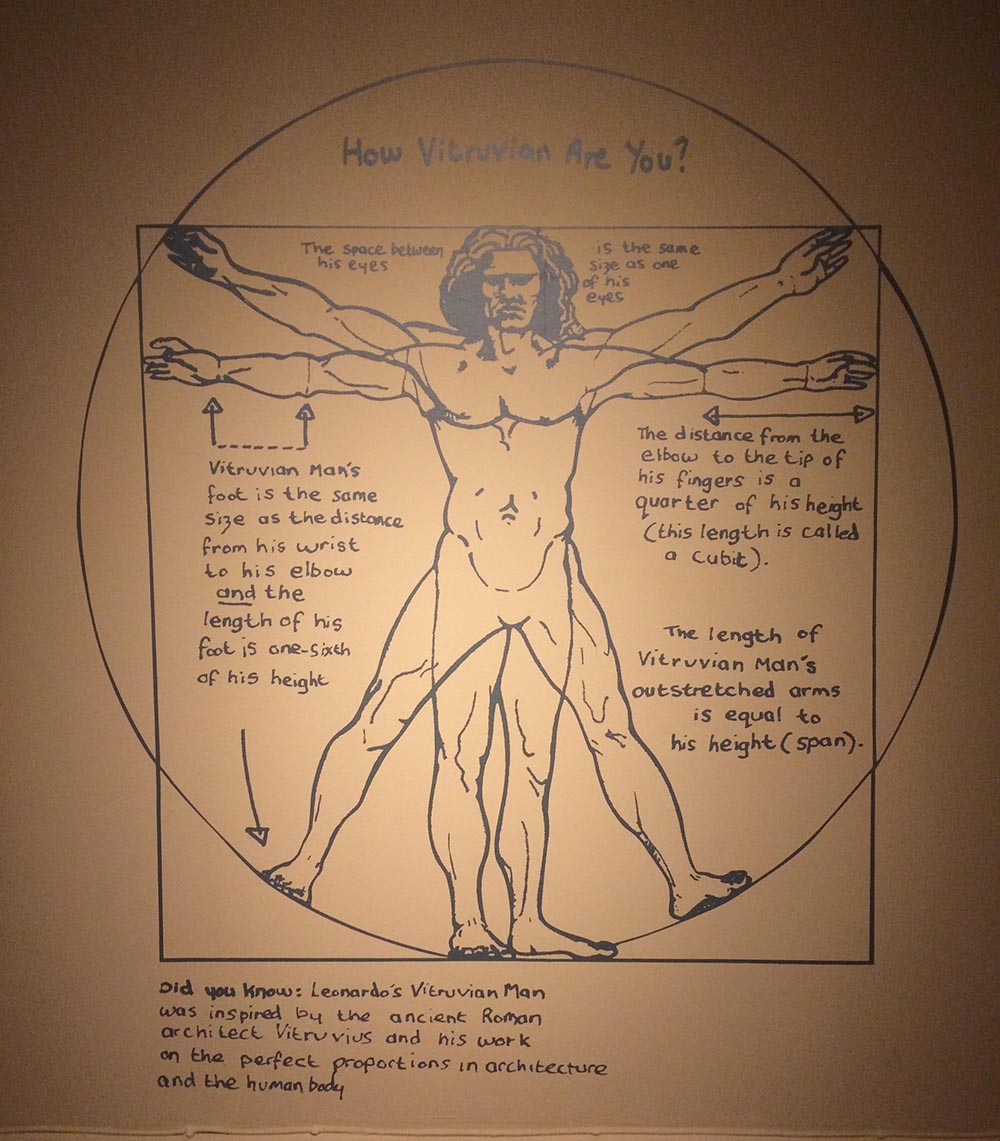 How Vitruvian Are You?
The space between
his eyes
is the same
size as one
of his
eyes
Vitruvian Man's
foot is the same
size as the distance
from his wrist
to his elbow
and the
length of his
foot is one-sixth
of his height
The distance from the
elbow to the tip of
his fingers is a
quarter of his height
(this length is called
a cubit).
The length of
Vitruvian Man's
outstretched arms
is equal to
his height (span).
Did you know: Leonardo's Vitruvian Man
was inspired by the ancient Roman
architect Vitruvius and his work
on the perfect proportions in architecture
and the human body